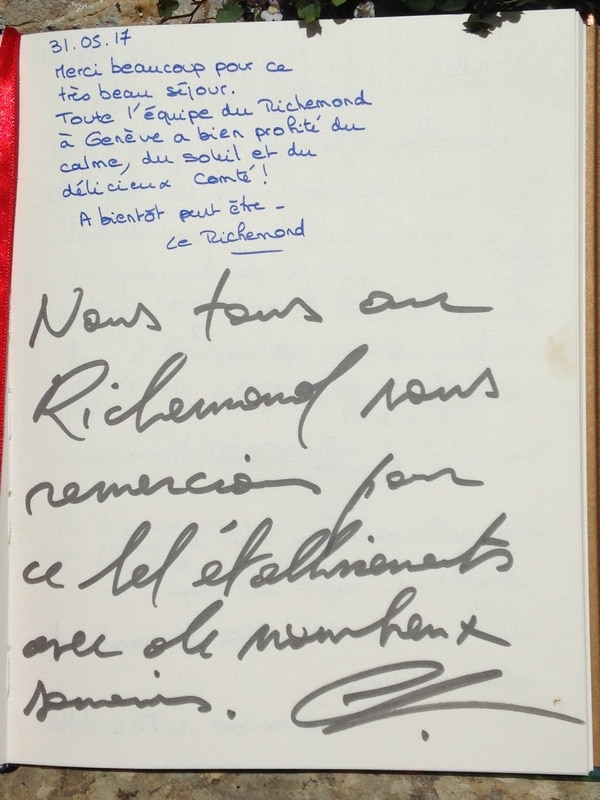 31.05.17
Merci beaucoup pour ce
très beau séjour.
Toute l'équipe du Richemond
à Genève a bien profité du
calme, du soleil et du
délicieux Comté!
A bientôt peut être -
Le Richemond
Nous tous au
Richemond vous
remercions pour
ce bel établissements
avec de nombreux